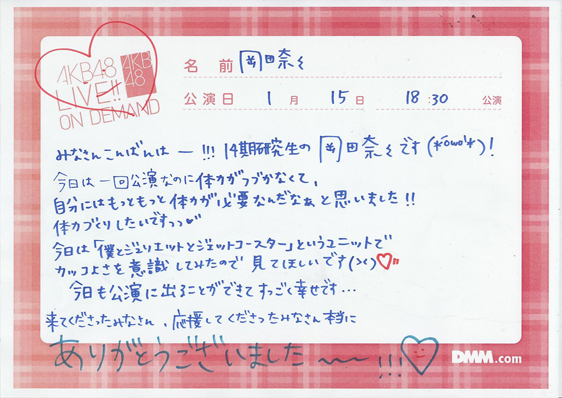 AKB48
LIVE!!
ON DEMAND
AKB
48
名前 岡田奈々
公演日 1月 15日 18:30 公演
みなさんこんばんはー!!! 14期研究生の岡田奈々です(*'ω'*)!
今日は一回公演なのに体力がつづかなくて、
自分にはもっともっと体力が必要なんだなぁと思いました!!
体力づくりしたいですっっ
今日は「僕とジュリエットとジェットコースター」というユニットで
カッコよさを意識してみたので見てほしいです(><)♡
今日も公演に出ることができてすっごく幸せです…
来てくださったみなさん、応援してくださったみなさん本当に
ありがとうございました〜〜!!!♡
DMM.com